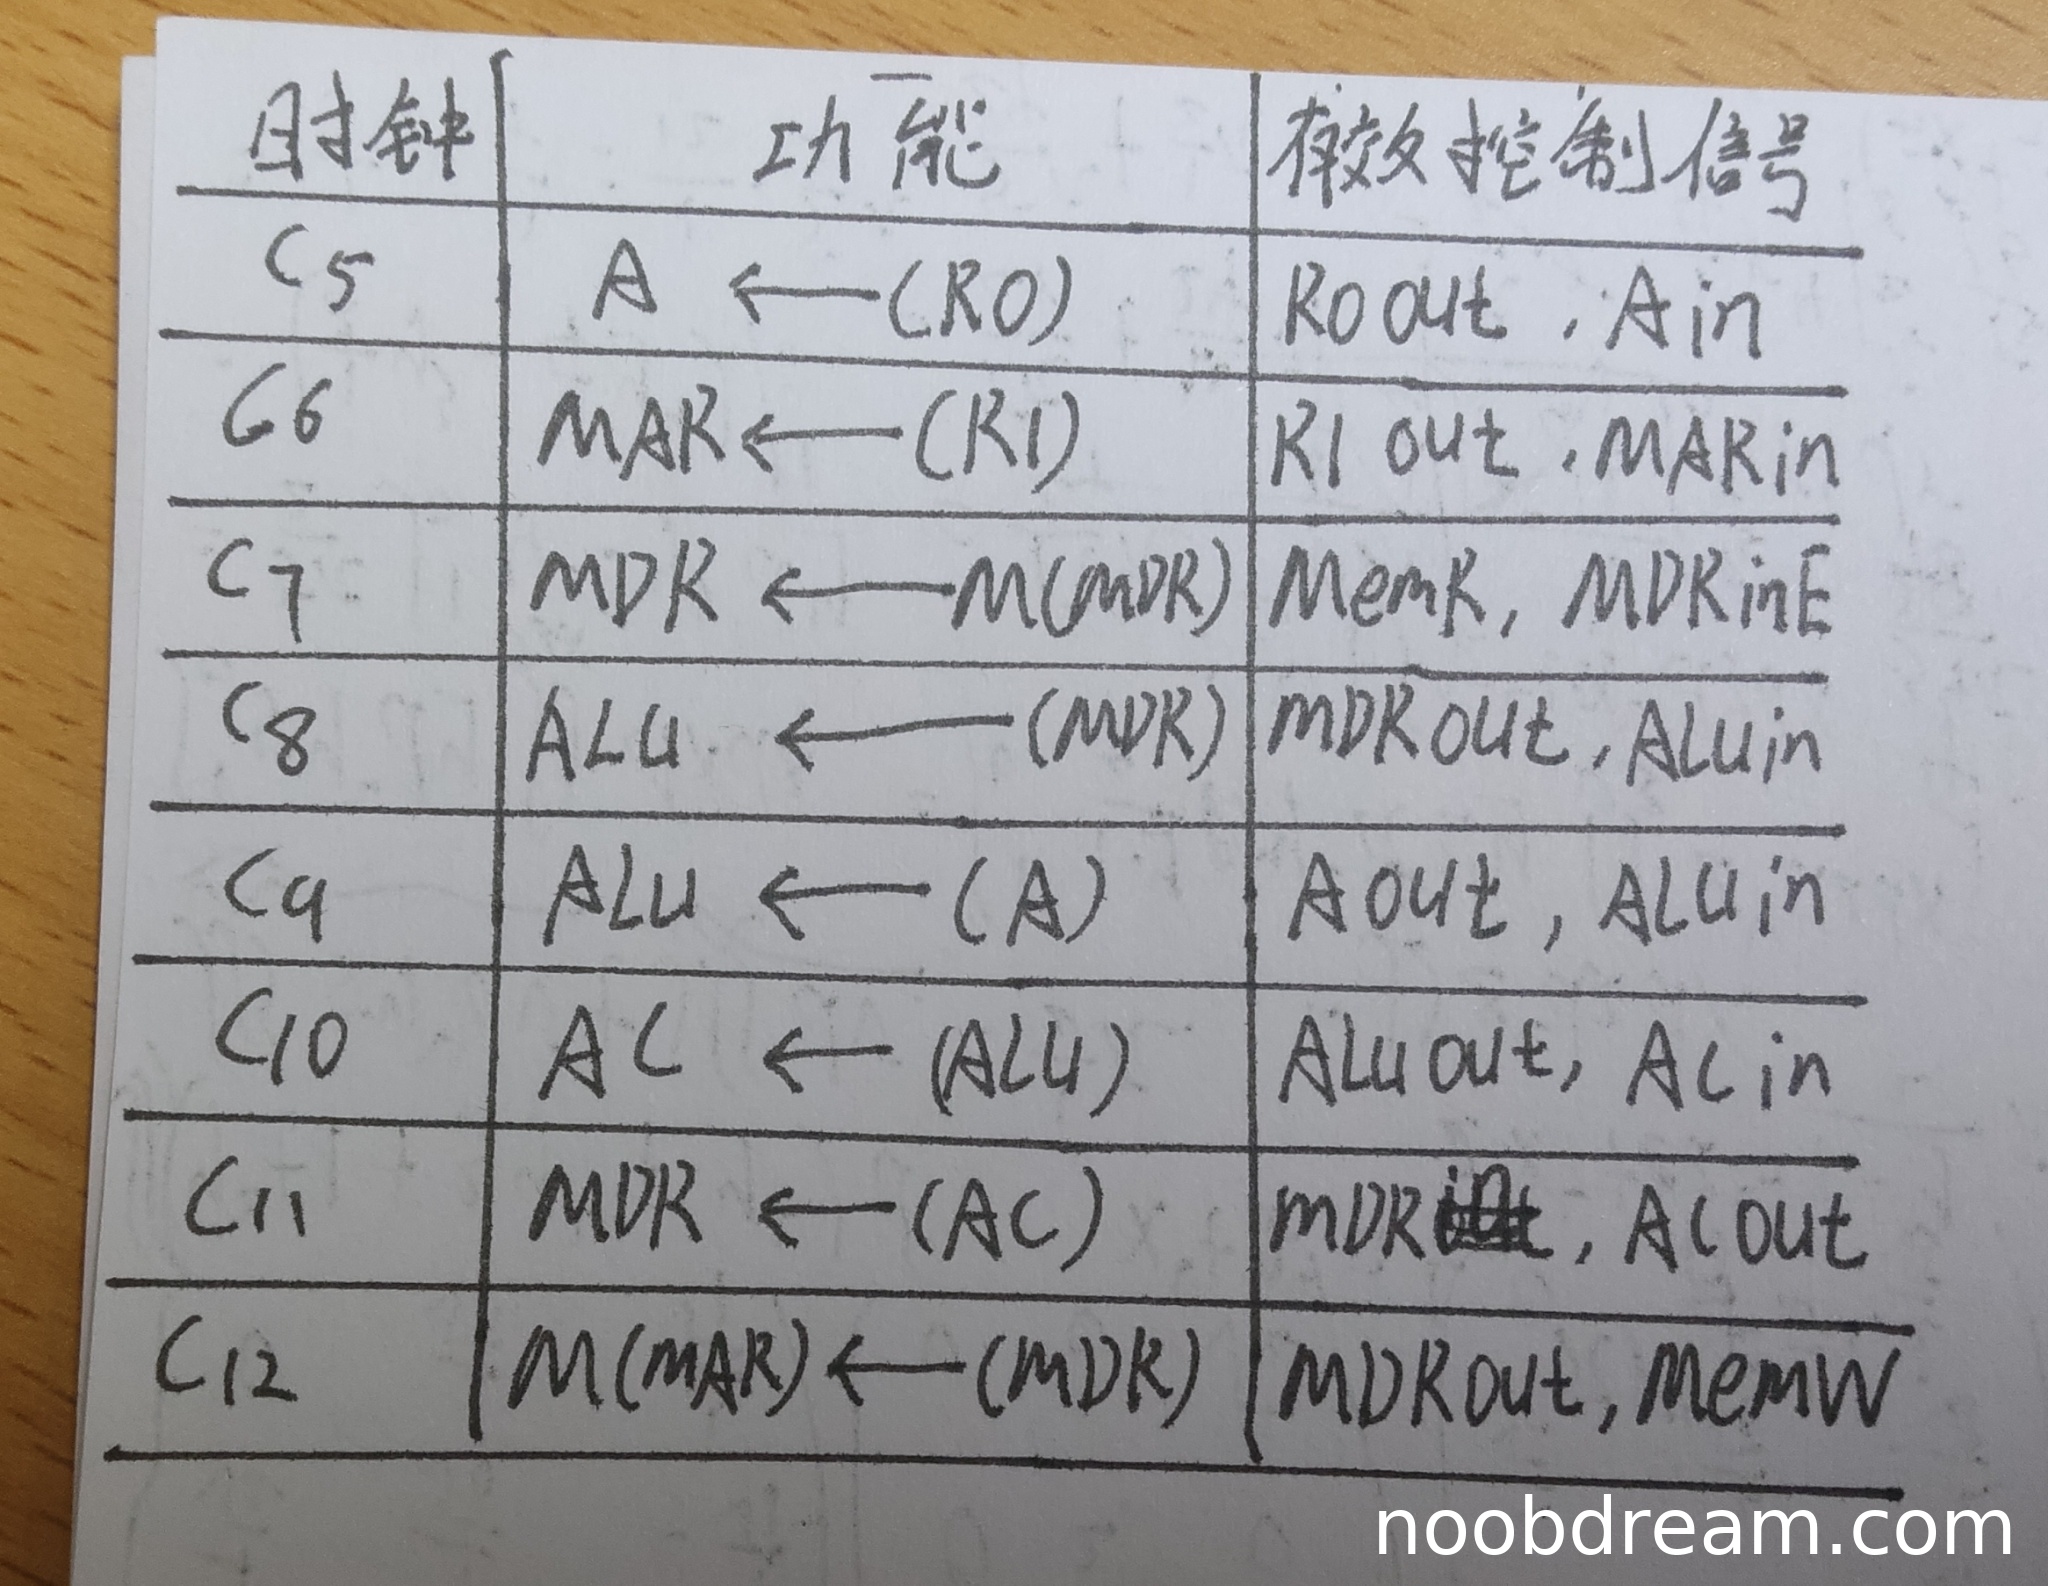 时钟 功能 有效控制信号
C5 A ← (R0) R0out, Ain
C6 MAR ← (R1) R1 out, MARin
C7 MDR ← M(MDR) MemR, MDRinE
C8 ALU ← (MDR) MDRout, ALUin
C9 ALU ← (A) Aout, ALUin
C10 AC ← (ALU) ALUout, ACin
C11 MDR ← (AC) MDRin, ACout
C12 M(MAR) ← (MDR) MDRout, MemW
noobdream.com